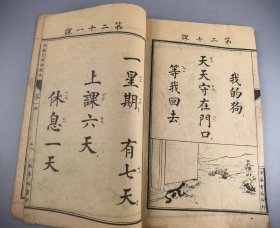 第二十課
我的狗
天天守在門口
等我回去
第二十一課
一星期 有七天
上課六天
休息一天